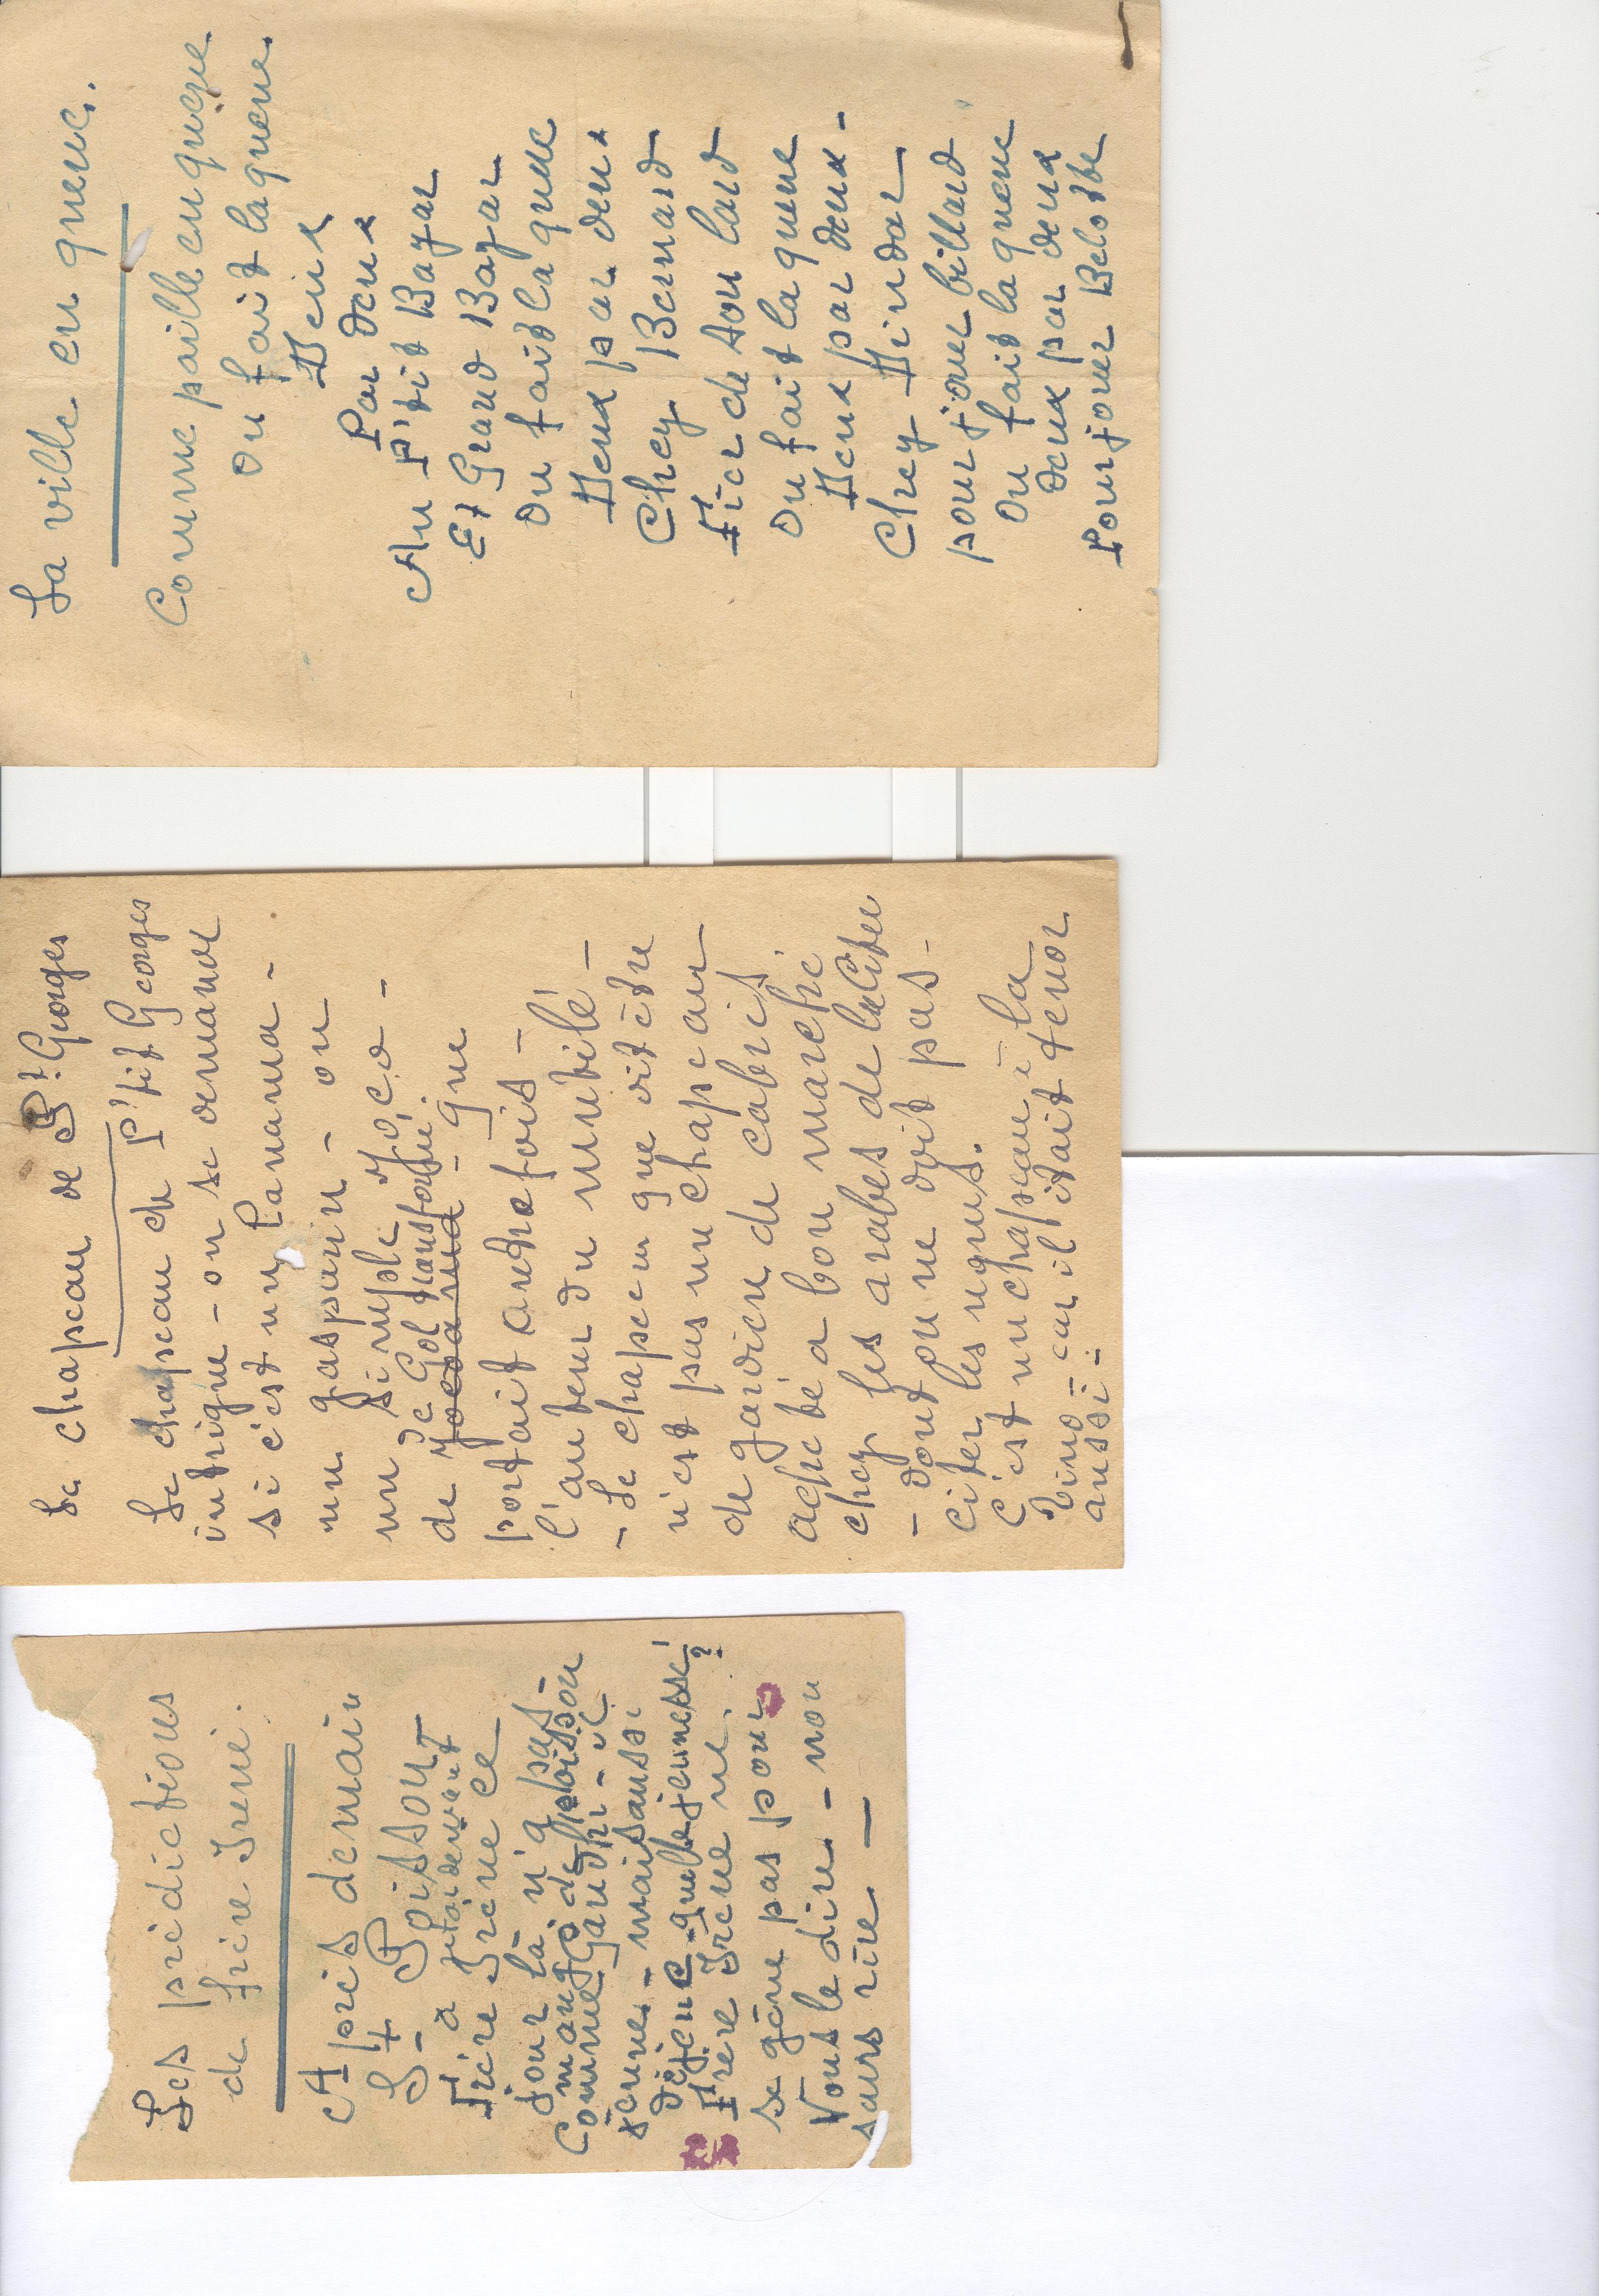 Les prédictions
de frère Irené.
Après demain
St Poisson
L - à jetai devant
Frère Irene ce
jour là n'a pas
mangé de poisson
comme Gandhi - il
jeune - mais aussi
déjeune quelle jeunesse!
Frère Irene ne
se gène pas pour
Vous le dire - non
sans rire -
Le chapeau de Pt Georges
Le chapeau de P'tit Georges
intrigue - on se demande
si c'est un Panama -
un gaspain - ou
un simple Yoco -
de Gol transformé
portait autrefois -
l'auteur du mutilé -
- Le chapeau que dit être
n'est pas un chapeau
de gardien de cabris.
acheté a bon marché
chez les arabes de
- dont on ne doit pas -
citer les ugnes.
C'est un chapeau à la
Rino - car il était tenor
aussi -
La ville en queue.
Comme paille en queue
On fait la queue
Deux
Par deux
Au P'tit Bazar
Et Grand Bazar
On fait la queue
Deux par deux
Chez Benard
Fier de son lard
On fait la queue
Deux par deux -
Chez Dindar
pour jouer billard
On fait la queue
deux par deux
Pour jouer Belotte